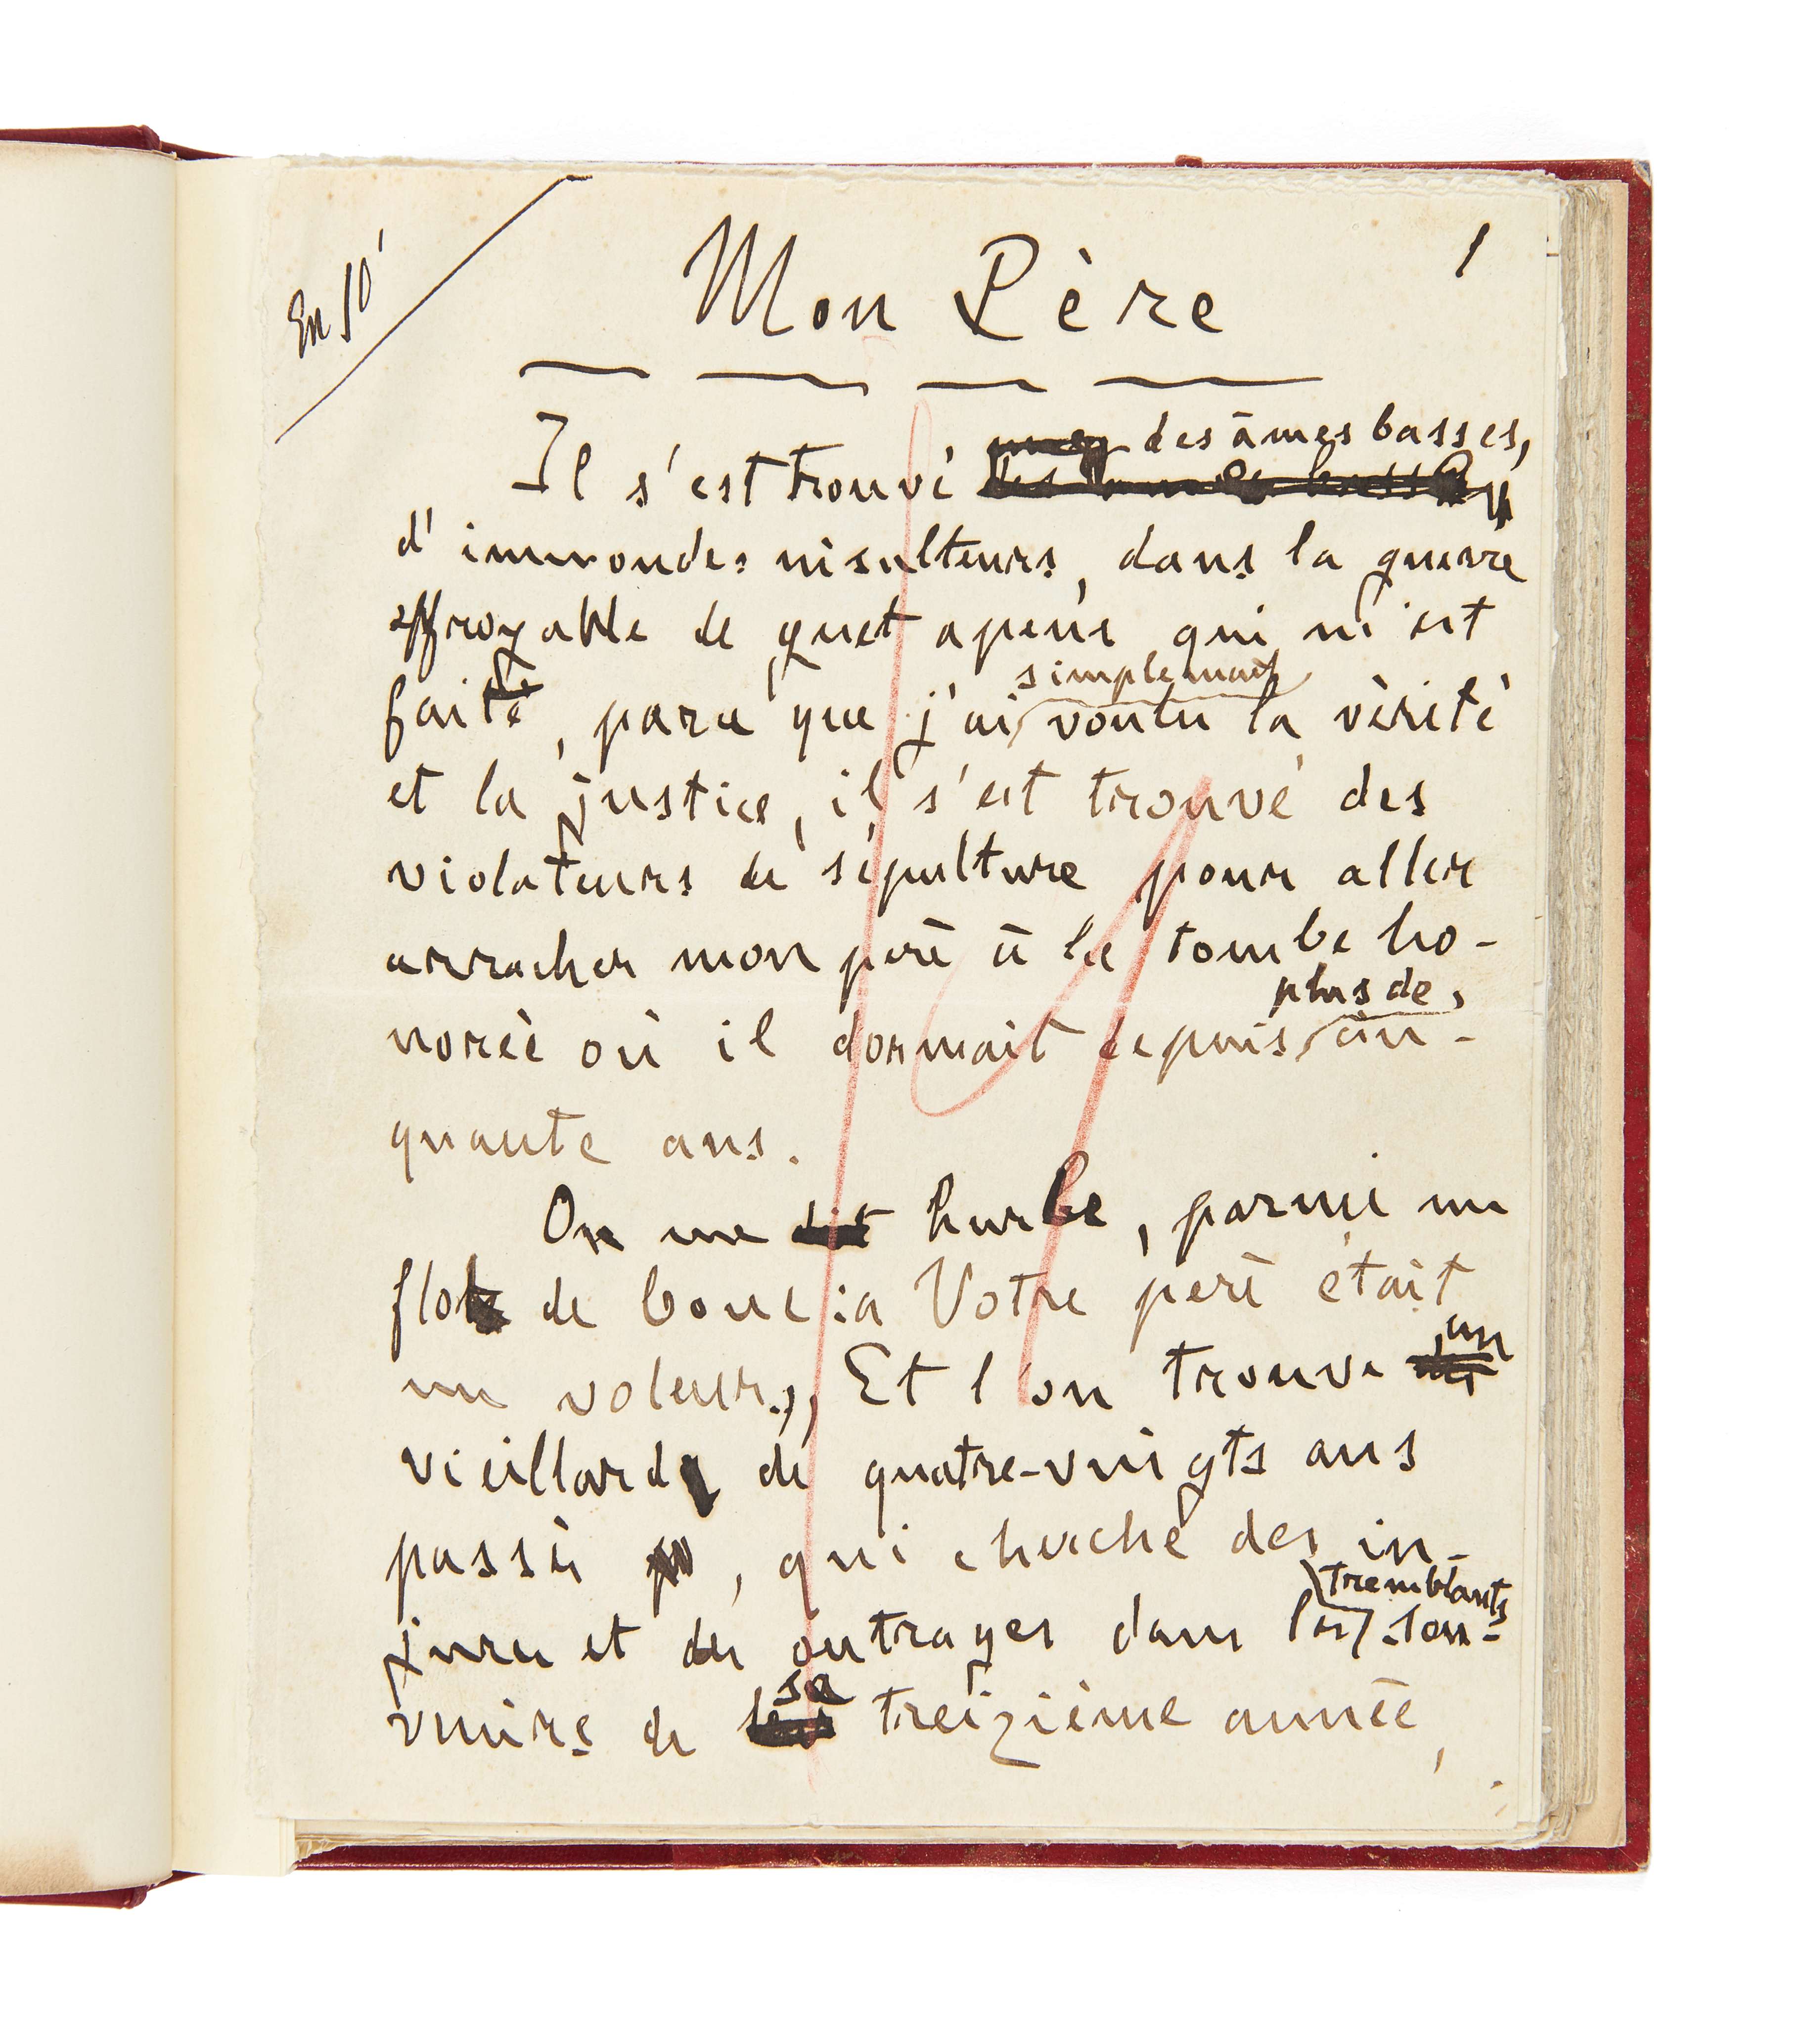 En 10
1
Mon Père
des âmes basses,
Il s'est trouvé
d'immondes insulteurs, dans la guerre
effroyable de guet apens qui m'est
faite, parce que j'ai simplement voulu la vérité
et la justice, il s'est trouvé des
violateurs de sépulture pour aller
arracher mon père à la tombe ho-
norée où il dormait depuis plus de cin-
quante ans.
On me hurle, parmi un
flot de boue : « Votre père était
un voleur. » Et l'on trouve un
vieillard de quatre-vingts ans
passés, qui cherche des in-
jures et des outrages dans les tremblants sou-
venirs de sa treizième année,